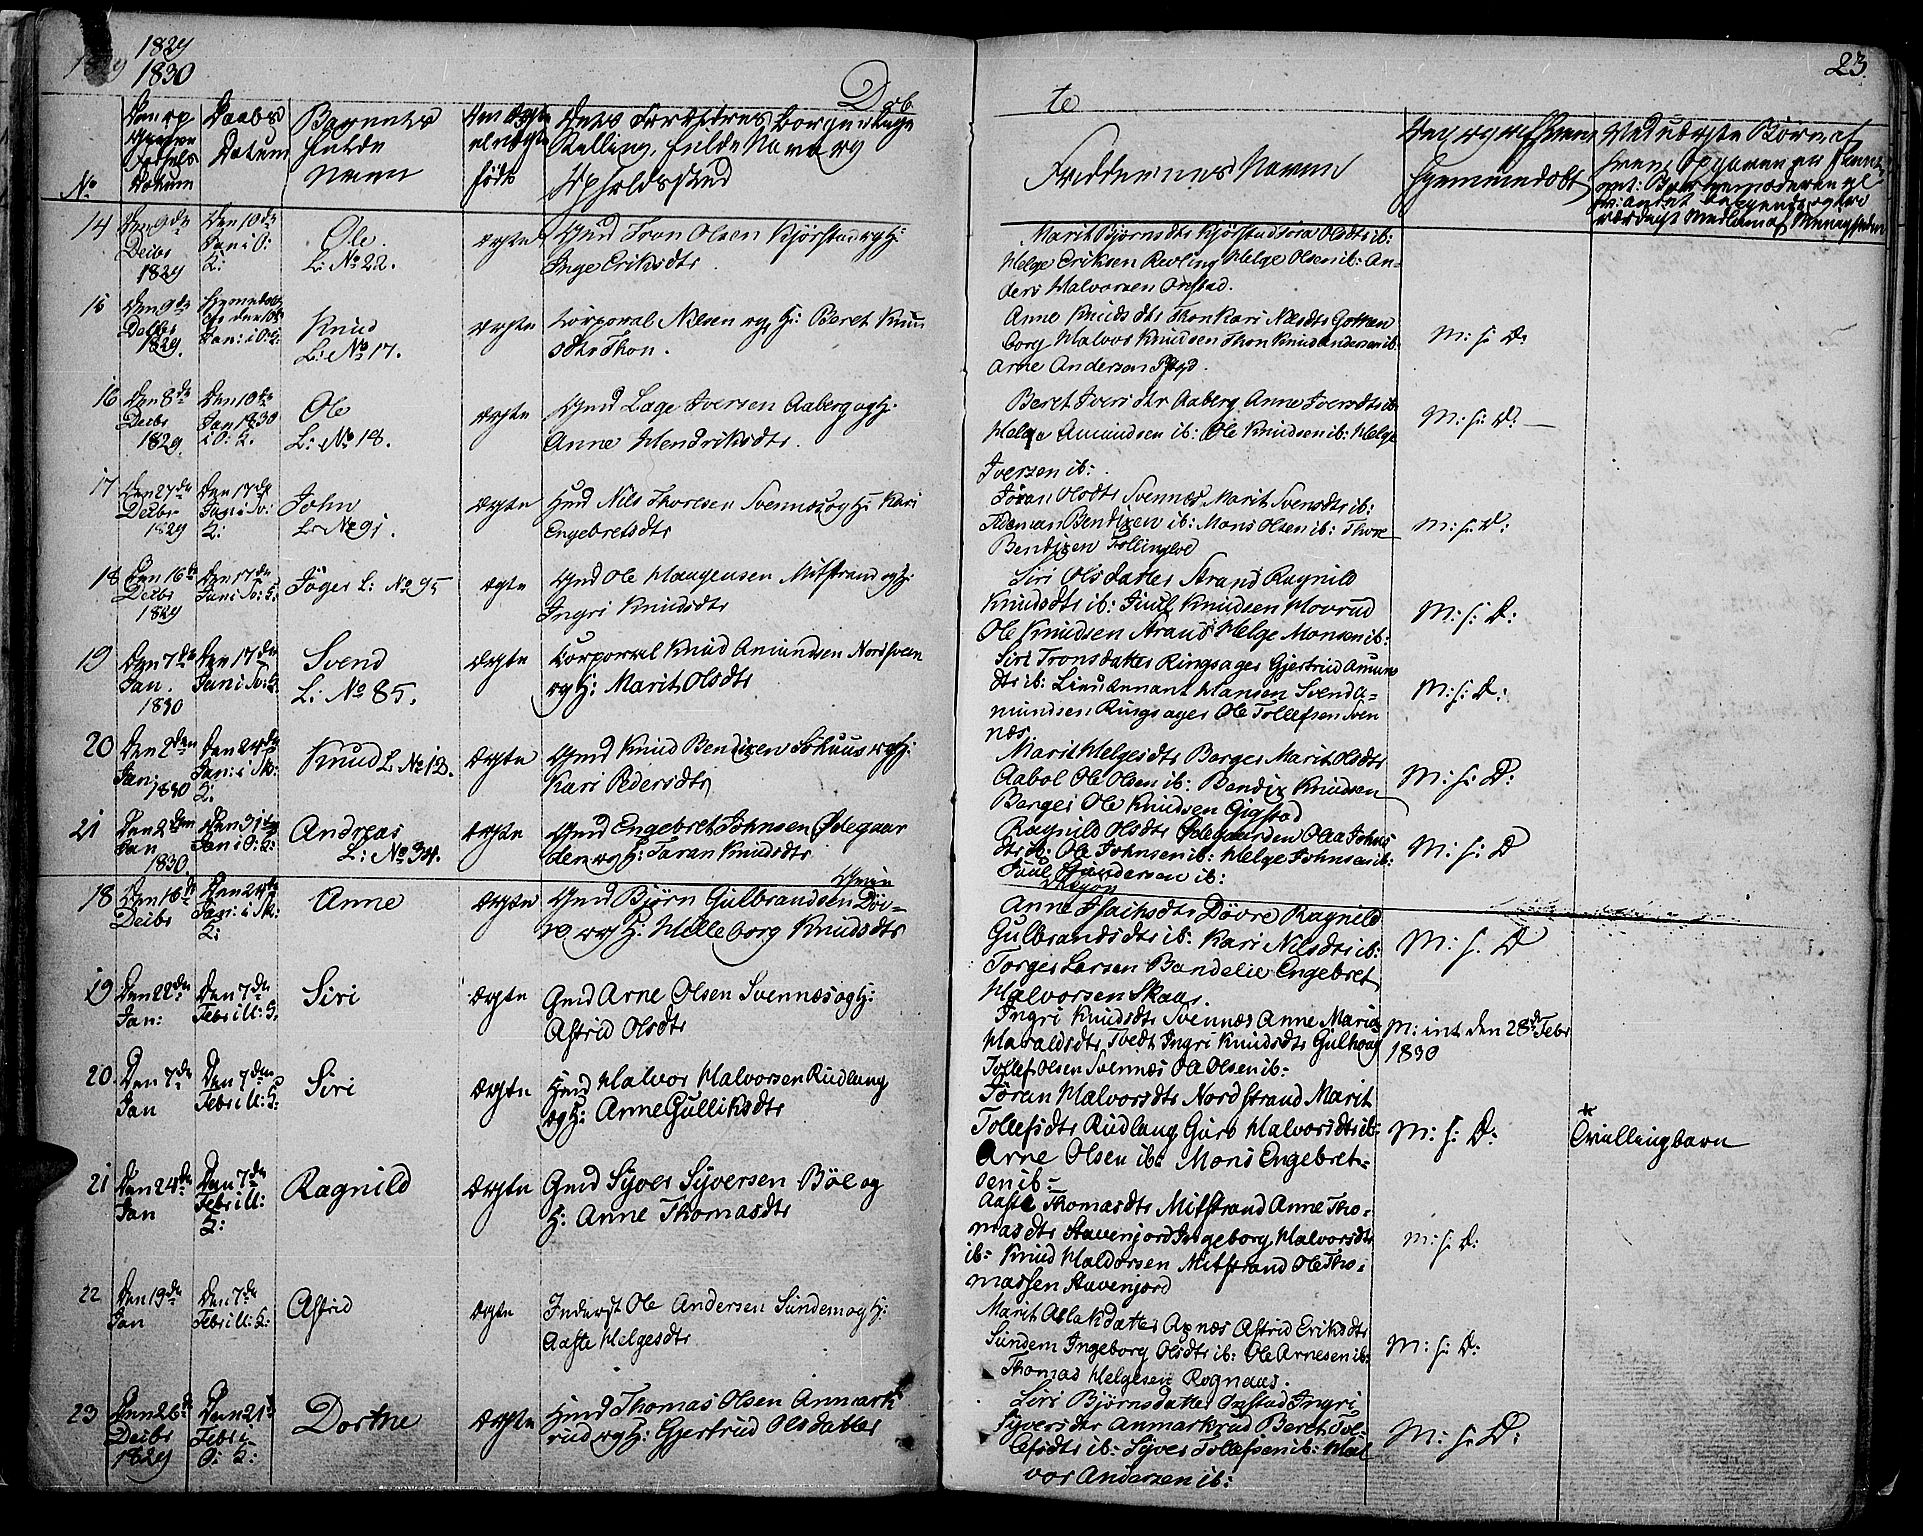 1829
1830
Døb
te
23.
No
Datum
Daabs
Datum
Barnets
fulde
Navn
født
Stilling, fulde Navn og
Opholdssted
Faddernes Navne
Hjemmedøbt
14
Den 9de
Decbr
1829
Den 10de
Jan i O:
K:
Ole.
L: No 22.
ægte
Gmd Tron Olsen Kjørstad og H:
Inge Eriksdtr
Marit Bjørnsdtr Kjørstad Tora Olsdtr ib:
Helge Eriksen Revling Helge Olsen ib: An-
ders Halvorsen Onstad.
15
Den 9de
Decbr
1829.
Jan: i O: K:
Knud
L: No 17.
ægte
Corporal Nilsen og H: Beret Knu
sdtr Thon.
Anne Knudsdtr Thon Kari Nilsdtr Gotten
borg Halvor Knudsen Thon Knud Andersen ib:
Arne Andersen
M: f: D:
16
Den 8de
Decbr
1829.
Den 10de
Jan 1830
i O: K.
Ole
L: No 18.
ægte
Gmd Lage Iversen Aaberg og H:
Anne Hendriksdtr.
Beret Iversdtr Aaberg Anne Iversdtr ib
Helge Amundsen ib: Ole Knudsen ib: Helge
Iversen ib:
M: f: D:
17
Den 27de
Decbr
1829
Den 17de
Jan i Sv:
K:
John
L: No 91.
ægte
Hmd Nils Thoresen Svennæs og H: Kari
Engebretsdtr
Jøran Olsdtr Svennæs Marit Svensdtr ib:
Tideman Bendixen ib: Mons Olsen ib: Thore
Bendixen Follingloe
M: f: D:
18
Den 16de
Decbr
1829
Den 17de
Jan i Sv: K:
Jøger L: No 95
ægte
Gmd Ole Haagensen Mitstrand og H:
Ingri Knudsdtr
Siri Olsdatter Strand Ragnild
Knudsdtr ib: Juul Knudsen Hovrud
Ole Knudsen Strand Helge Monsen ib:
M: f: D:
19
Den 7de
Jan.
1830
Den 17de
Jan i Sv: K.
Svend
L: No 85.
ægte
Corporal Knud Amundsen Nordsveen
og H: Marit Olsdtr
Siri Tronsdatter Ringsager Gjertrud Amund
dtr ib: Lieutennant Hansen Svend A-
mundsen Ringsager Ole Tollefsen Sven
næs.
M: f: D:
20
Den 2den
Jan:
1830
Den 24de
Jan: i Sk:
K:
Knud L: No 13.
ægte
Gmd Knud Bendixen og H:
Kari Pedersdtr
Marit Helgesdtr Berges Marit Olsdtr
Aabol Ole Olsen ib: Bendix Knudsen
Berges Ole Knudsen Gigstad
M: f: D:
21
Den 2den
Jan
1830.
Den 31te
Jan i O: K:
Andreas
L: No 34.
ægte
Gmd Engebret Johnsen Ødegaar
den og H: Taran Knudsdtr
Ragnild Olsdtr Ødegaarden Olea Johns
dtr ib: Ole Johnsen ib: Helge Johnsen ib:
Juul Gundersen ib:
M: f: D
18
Den 16de
Decbr
Den 24de
Jan: i Sk:
K:
Anne
ægte
Gmd Bjørn Gulbrandsen Döv-
re og H: Helleborg Knudsdtr
Anne Isachsdtr Dövre Ragnild
Gulbrandsdtr ib: Kari Nilsdtr ib:
Torger Larsen Bandelie Engebret
Halvorsen Skaar.
M: f: D
19
Den 22de
Jan:
Den 7de
Febr i U: K.
Siri
ægte
Gmd Arne Olsen Svennæs og H:
Astrid Olsdtr
Ingri Knudsdtr Svennæs Anne Marie
Haraldsdtr Tvedt Ingri Knudsdtr Gulhoug
Tollef Olsen Svennæs Ole Olsen ib:
M: int den 28de Febr
1830
20.
Den 7de
Jan
Den 7de
Febr i U: K:
Siri
ægte
Hmd Halvor Halvorsen Rudlang
og H: Anne Gulliksdtr
Jøran Halvorsdtr Nordstrand Marit
Tollefsdtr Rudlang Guro Halvorsdtr ib:
Arne Olsen ib: Mons Engebret-
sen ib:
M: f: D:
*
Tvillingbarn
21
Den 24de
Jan
Den 7de
Febr i U:
K:
Ragnild
ægte
Gmd Syver Syversen Böe og
H: Anne Thomasdtr
Aaste Thomasdtr Mitstrand Anne Tho-
masdtr Stavenjord Ingeborg Halvorsdtr
ib: Knud Haldorsen Mitstrand Ole Tho-
massen Stavenjord
M: f: D:
22
Den 19de
Jan
Den 7de
Febr i U: K:
Astrid
ægte
Inderst Ole Andersen Sundem og H:
Aaste Helgesdtr
Marit Aslaksdatter Apnæs Astrid Eriksdtr
Sundem Ingeborg Olsdtr ib: Ole Arnesen ib:
Thomas Helgesen Rognaas.
M: f: D:
23
Den 26de
Decbr
1829
Den 21de
Febr i
O: K:
Dorthe
ægte
Hmd Thomas Olsen Anmark
rud og H: Gjertrud Olsdatter
Siri Bjørnsdatter Onstad Ingri
Syversdtr Anmarkrud Beret Tol-
lefsdtr ib: Syver Tollefsen ib: Hal
vor Andersen ib:
M: f: D: